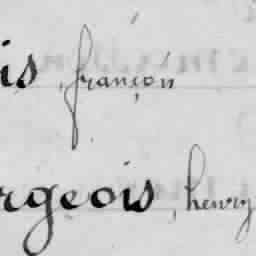 is, françois
rgeois, henry